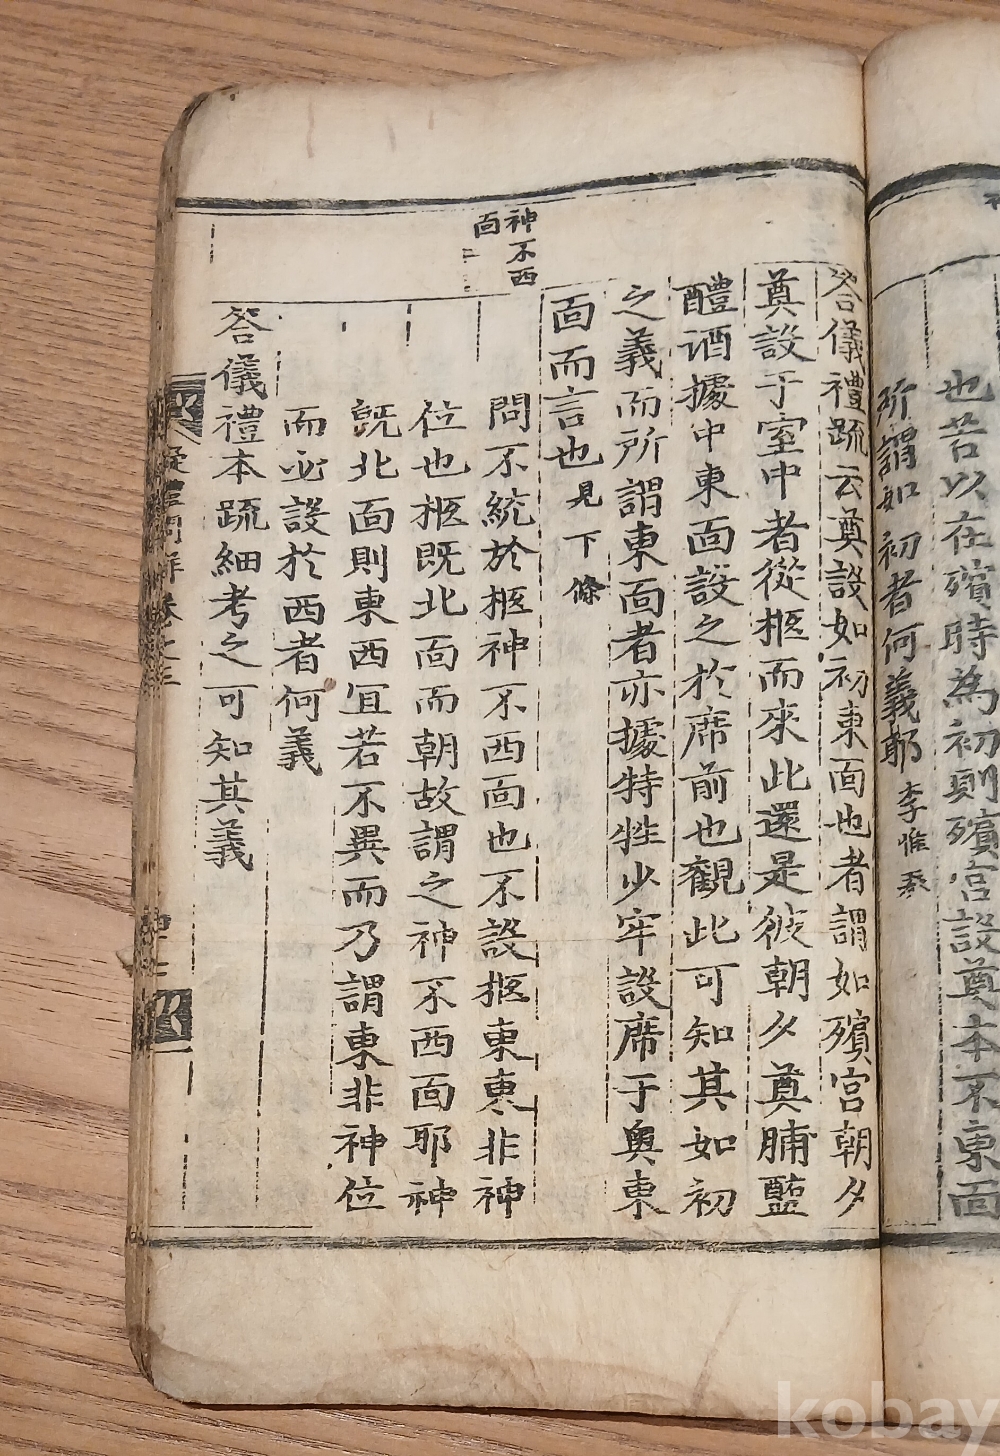 也若以在殯時為初則殯宮設奠本不東面
所謂如初者何義耶 李惟泰
答儀禮疏云奠設如初東面也者謂如殯宮朝夕
奠設于室中者從柩而來此還是彼朝夕奠脯醢
醴酒據中東面設之於席前也觀此可知其如初
之義而所謂東面者亦據特牲少牢設席于奧東
面而言也見下條
神不西
面
問不統於柩神不西面也不設柩東東非神
位也柩既北面而朝故謂之神不西面耶神
旣北面則東西冝若不異而乃謂東非神位
而必設於西者何義
答儀禮本疏細考之可知其義
疑禮問解 卷之三
kobay